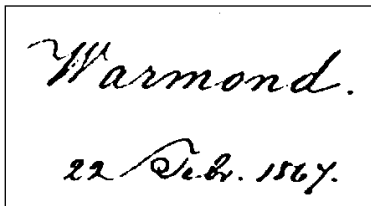 Warmond.
22 Febr. 1867.